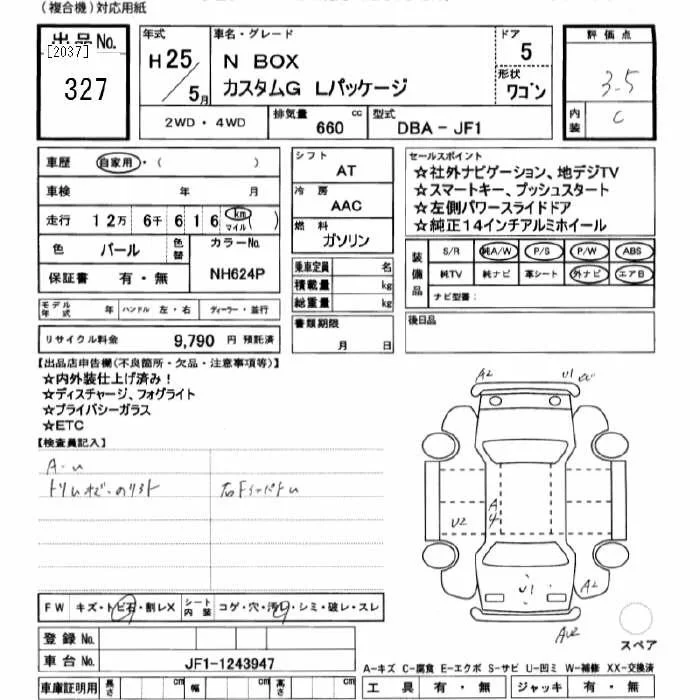 (複合機)対応用紙
出品No.
[2037]
327
年式
H25/5月
車名・グレード
N BOX
カスタムG Lパッケージ
ドア
5
形状
ワゴン
評価点
3.5
内装
C
2WD・4WD
排気量 660 cc
型式 DBA-JF1
車歴 自家用・( )
車検 年 月
走行 12万 6千 616 km マイル )
色 パール 色替
カラーNo.
NH624P
保証書 有・無
モデル年式 年 ハンドル 左・右 ディーラー・並行
リサイクル料金 9,790 円 預託済
シフト
AT
冷房
AAC
燃料
ガソリン
乗車定員 名
積載量 kg
総重量 kg
書類期限
月 日
セールスポイント
☆社外ナビゲーション、地デジTV
☆スマートキー、プッシュスタート
☆左側パワースライドドア
☆純正14インチアルミホイール
装備品
S/R 純A/W P/S P/W ABS
純TV 純ナビ 革シート 外ナビ エアB
ナビ型番:
後日品
【出品店申告欄(不良箇所・欠品・注意事項等)】
☆内外装仕上げ済み!
☆ディスチャージ、フォグライト
☆プライバシーガラス
☆ETC
【検査員記入】
A-u
A2 U1
U2
A4
U1
A2
FW キズ・トビ石・割レX
シート内装 コゲ・穴・汚レ・シミ・破レ・スレ
登録No.
車台No. JF1-1243947
車庫証明用 長さ cm 幅 cm 高さ cm
スペア
A-キズ C-腐食 E-エクボ S-サビ U-凹ミ W-補修 XX-交換済
工具 有・無 ジャッキ 有・無